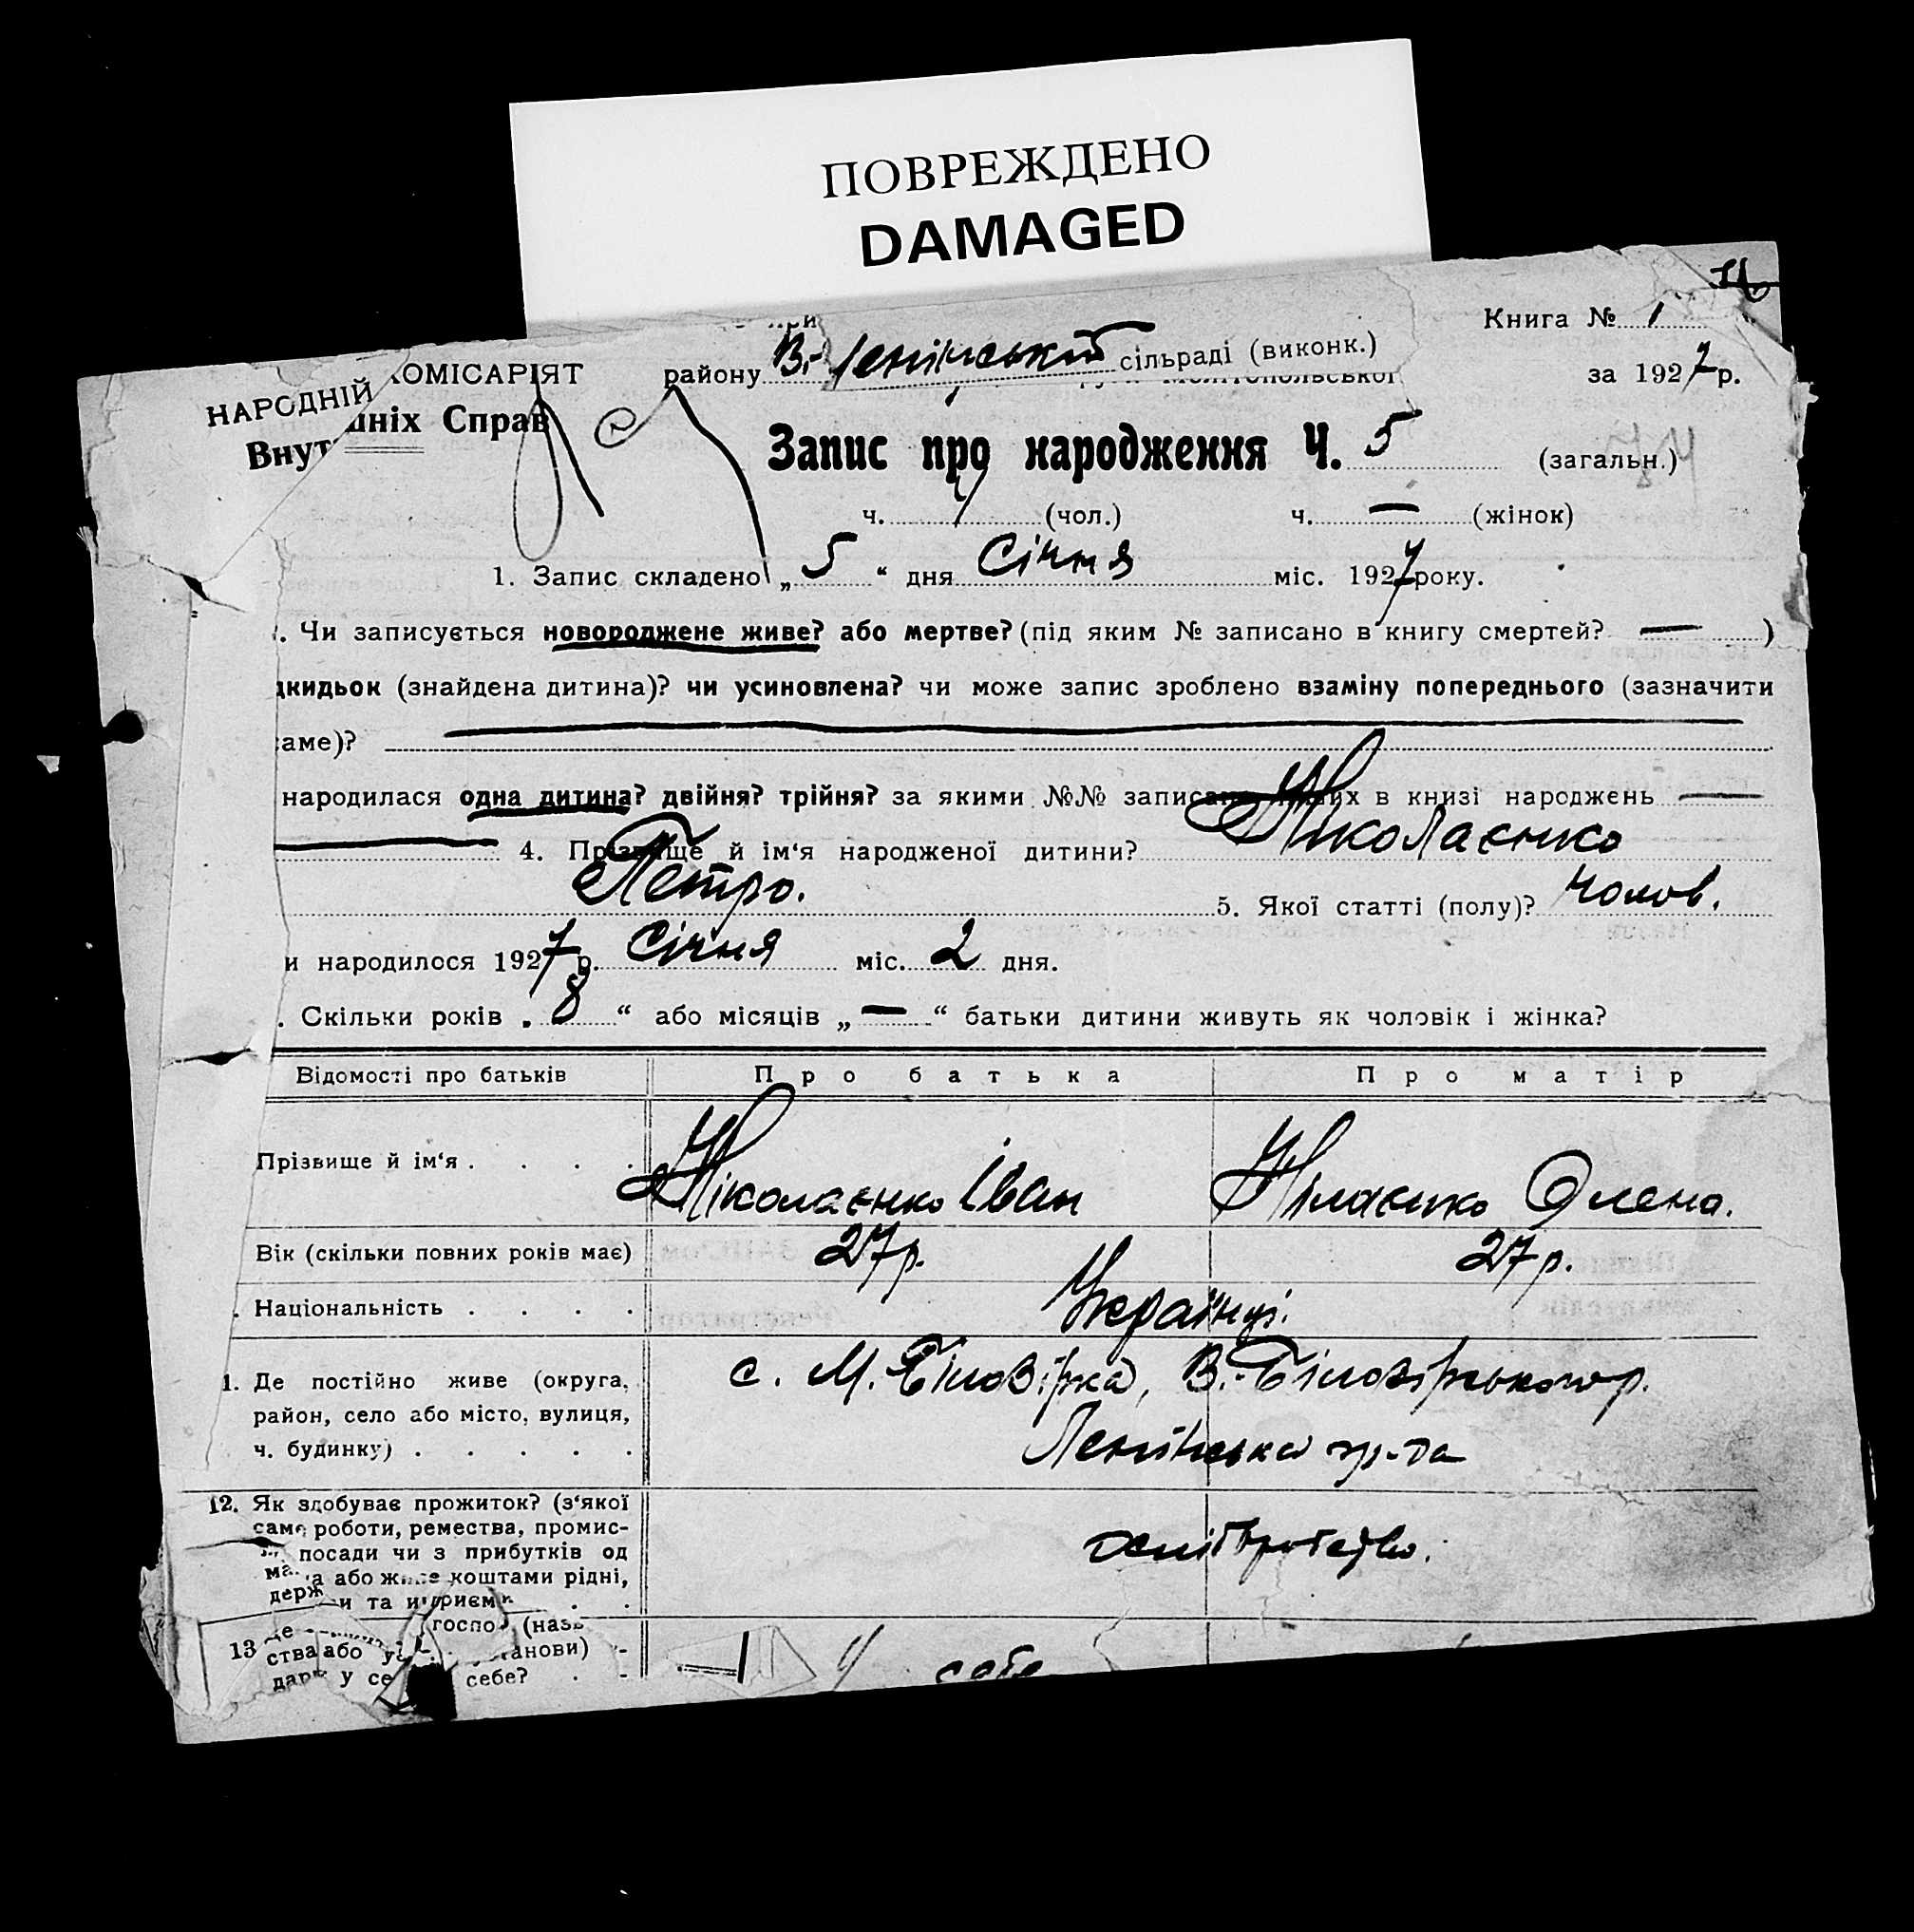 ПОВРЕЖДЕНО
DAMAGED
Книга № 1
НАРОДНІЙ КОМІСАРІЯТ
Внутрішніх Справ
при
району В.- Ленінській сільраді (виконк.)
за 1927 р.
Запис про народження Ч. 5 (загальн.)
ч. (чол.) ч. — (жінок)
1. Запис складено „ 5 “ дня Січня міс. 1927 року.
. Чи записується новороджене живе? або мертве? (під яким № записано в книгу смертей? — )
дкидьок (знайдена дитина)? чи усиновлена? чи може запис зроблено взаміну попереднього (зазначити
саме)?
народилася одна дитина? двійня? трійня? за якими №№ записано інших в книзі народжень —
4. Прізвище й ім‘я народженої дитини? Ніколаєнко
Петро. 5. Якої статті (полу)? Чолов.
и народилося 1927 р. Січня міс. 2 дня.
. Скільки років „ 8 “ або місяців „ — “ батьки дитини живуть як чоловік і жінка?
Відомості про батьків Про батька Про матір
Прізвище й ім‘я . . . . Ніколаєнко Іван Олена.
Вік (скільки повних років має) 27 р. 27 р.
. Національність . . . . Українці.
1. Де постійно живе (округа, район, село або місто, вулиця, ч. будинку) . . . . .
с. М. Білозірка, В.-Білозірського р.
Ленінська
12. Як здобуває прожиток? (з‘якої
саме роботи, ремества, промис-
посади чи з прибутків од
ма а або живе коштами рідні,
держ и та и
13
госпо (наз
ства або установи)
дар у се себе?